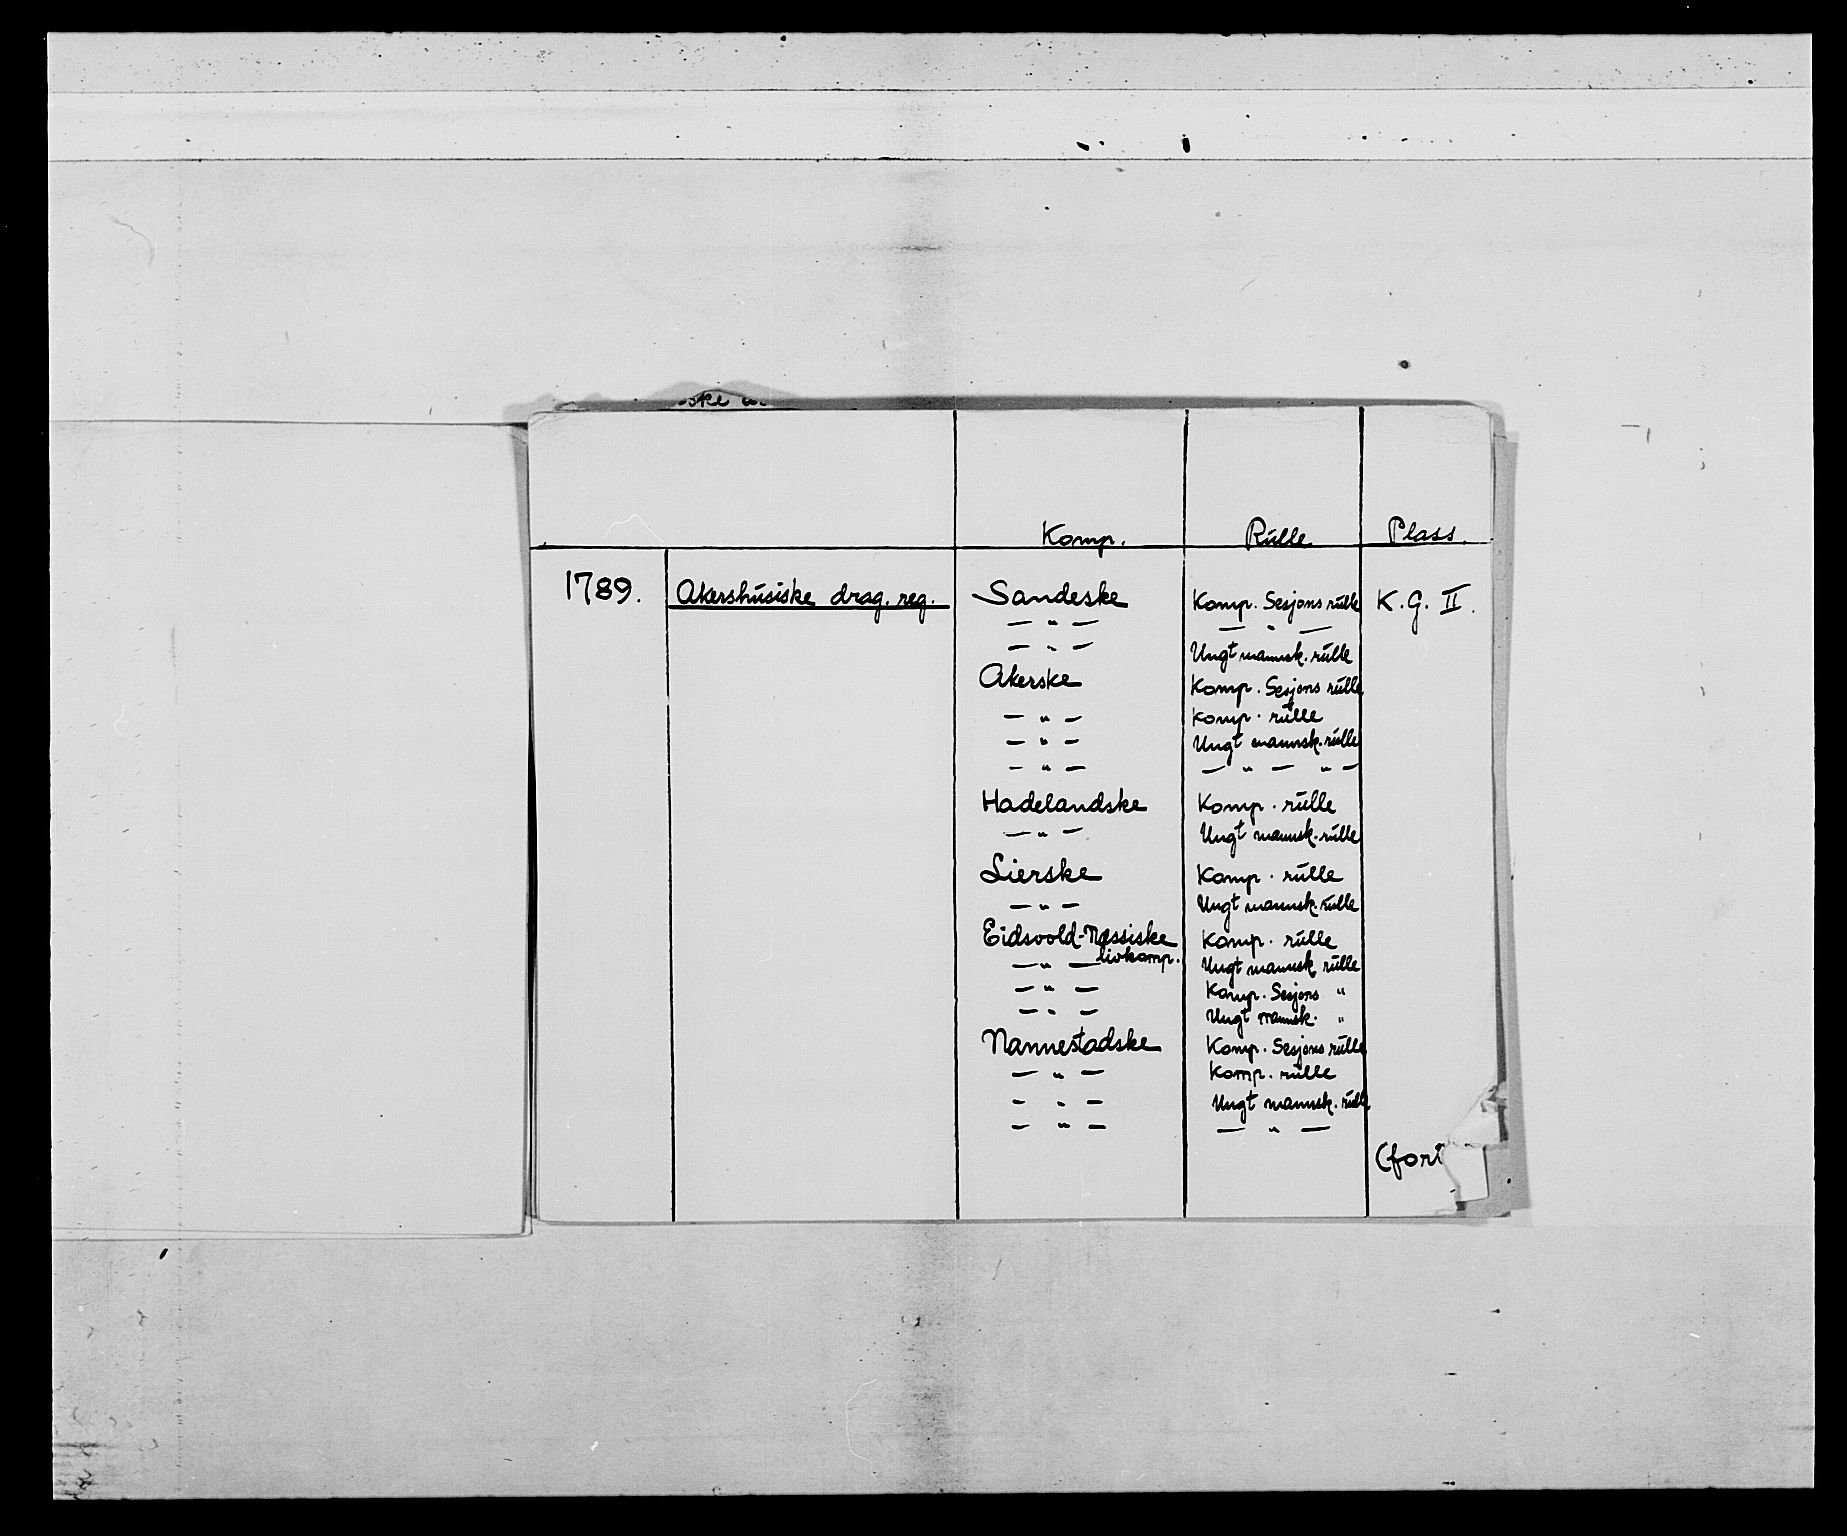 Komp. Rulle Plass.
1789. Akershusiske drag. reg. Sandeske Komp. Sesjons rulle K.G. II.
— " — — " —
— " — Ungt mannsk. rulle
Akerske Komp. Sesjons rulle
— " — Komp. rulle
— " — Ungt mannsk. rulle
— " — — " — " —
Hadelandske Komp. rulle
— " — Ungt mannsk. rulle
Lierske Komp. rulle
— " — Ungt mannsk. rulle
Eidsvold-Næssiske Komp. rulle
— " — livkomp. Ungt mannsk rulle
— " — Komp. Sesjons "
— " — Ungt mannsk. "
Nannestadske Komp. Sesjons rulle
— " — Komp. rulle
— " — Ungt mannsk. rulle
— " — — " —
(fort